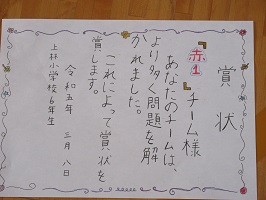 賞状
『赤1』チーム様
あなたのチームは、
より多く問題を解
かれました。
これによって賞状を
賞します。
令和五年 三月 八日
上井小学校6年生